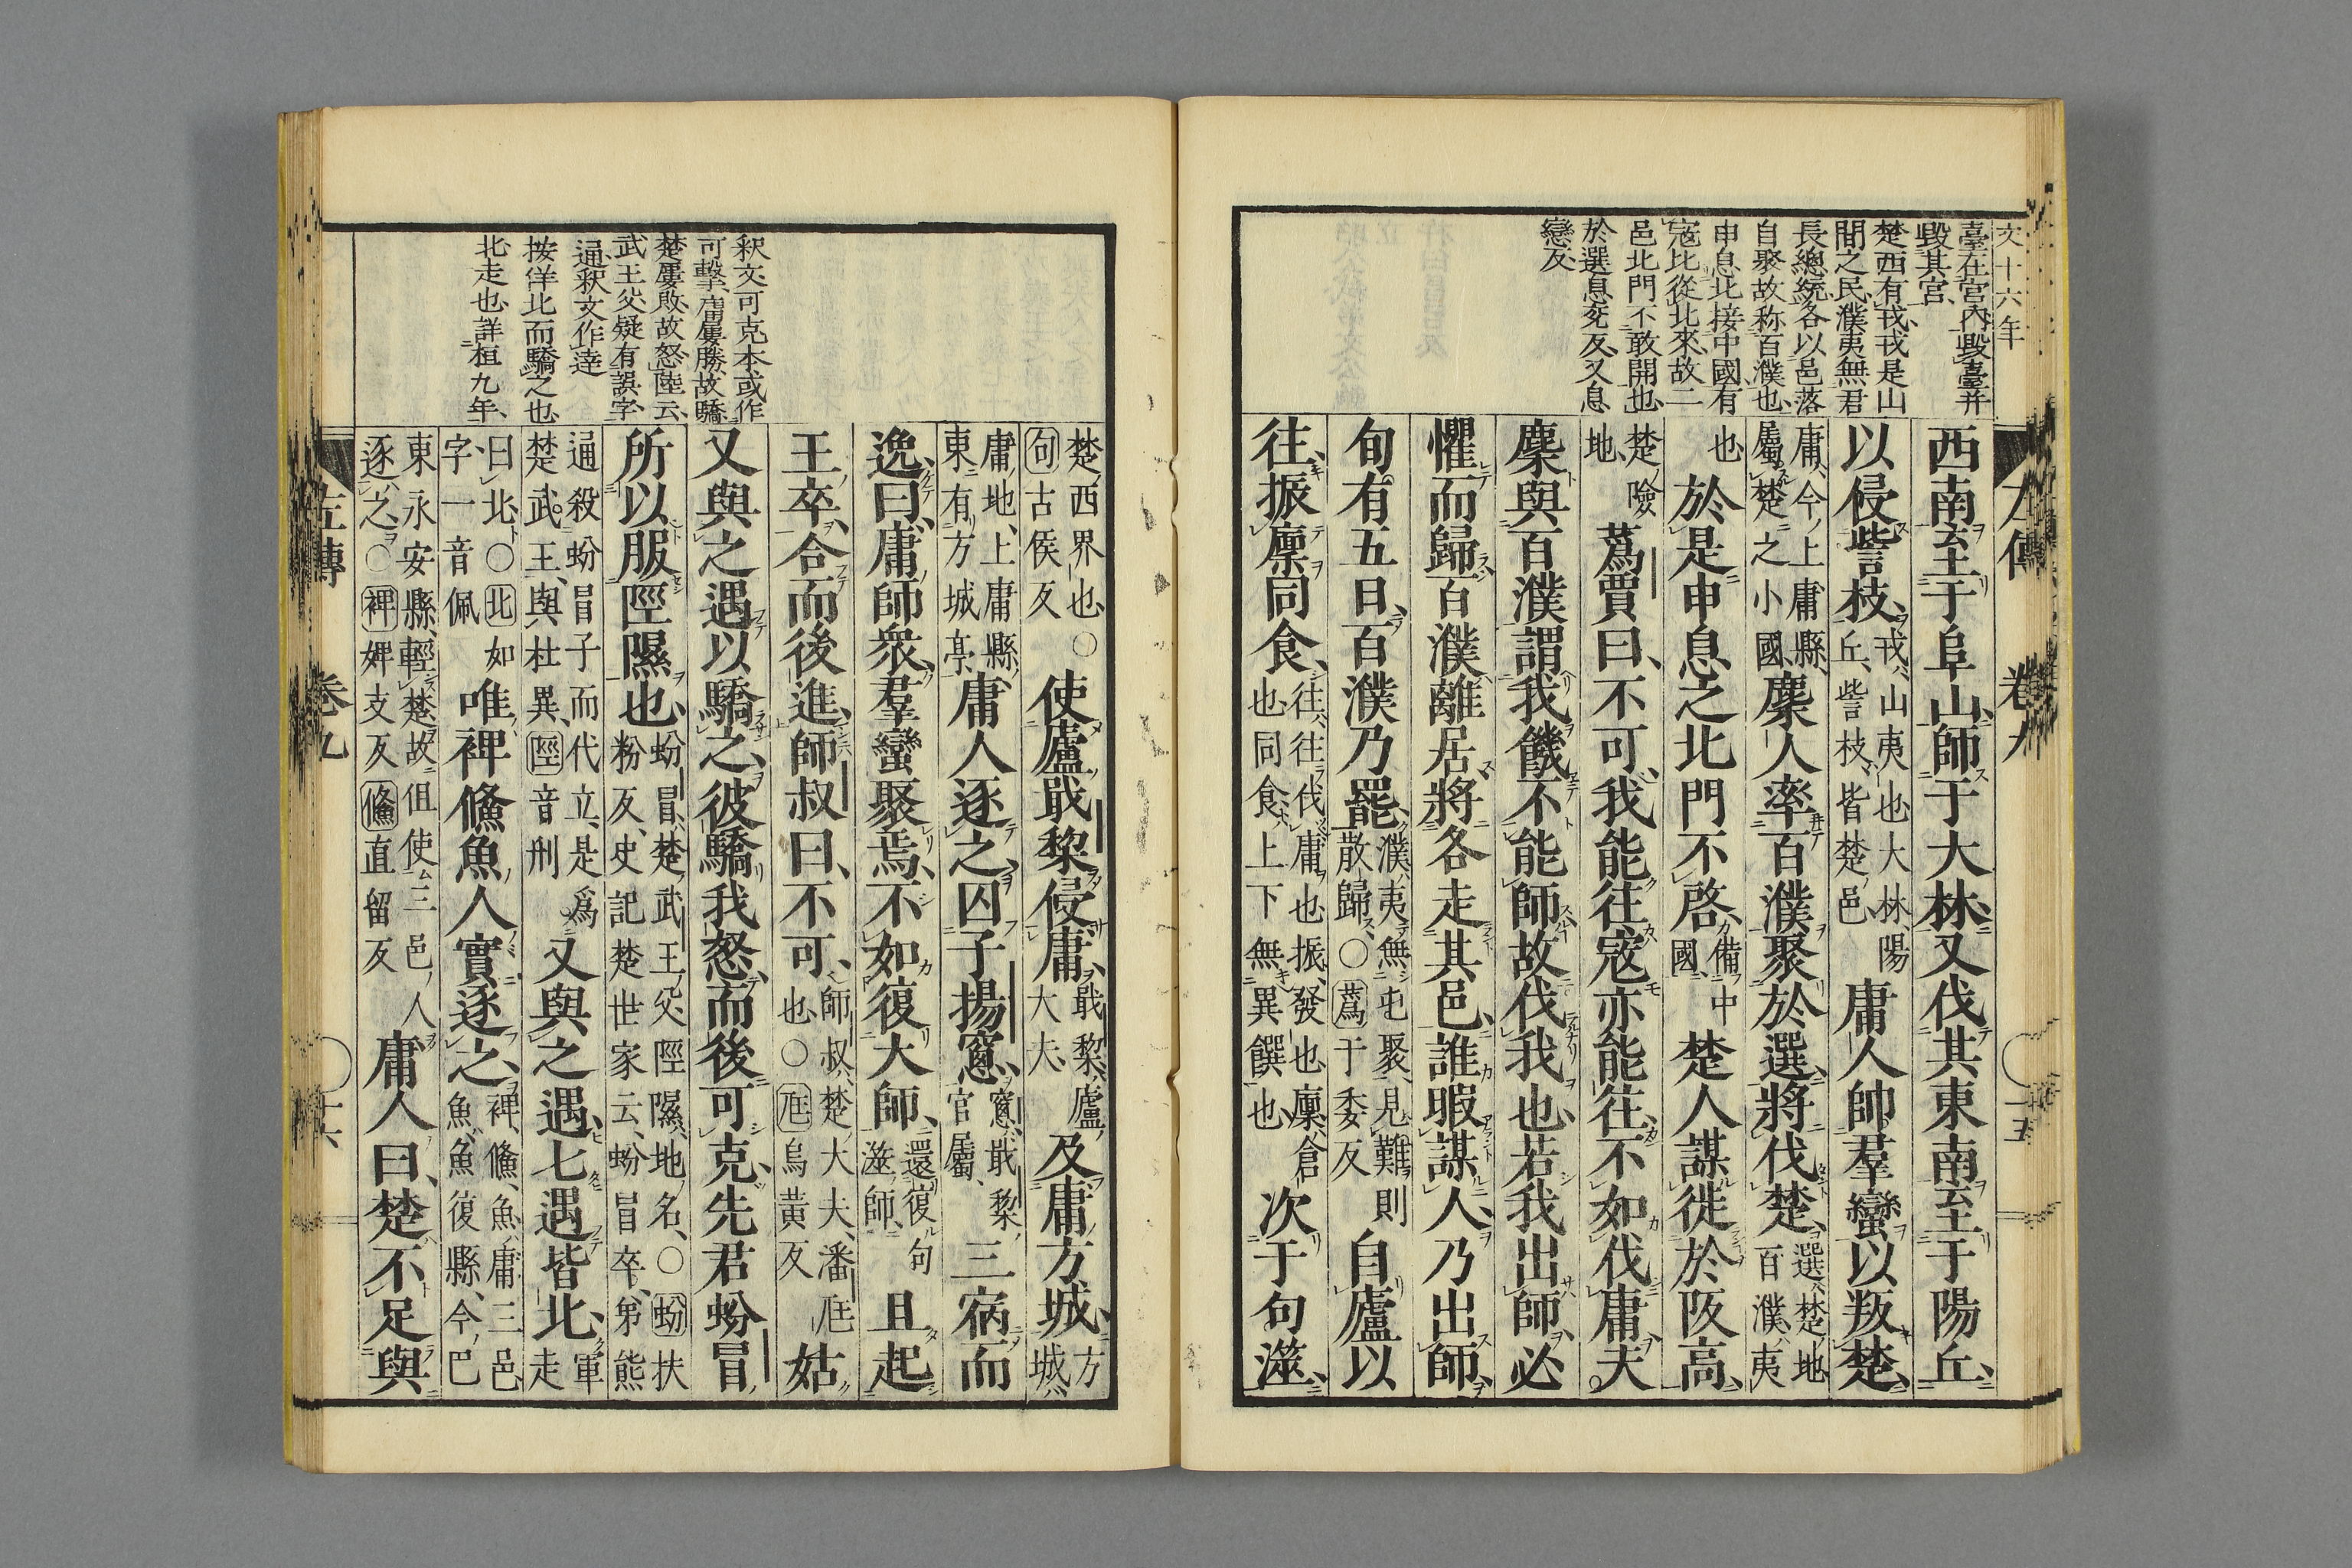 文十六年
臺在宮內毀臺并
毀其宮
楚西有戎戎是山
間之民濮夷無君
長總統各以邑落
自聚故称百濮也
申息北接中國有
寇比從北來故二
邑北門不敢開也
於選息兖反又息
戀反
左傳　卷九　十五
西南至于阜山師于大林又伐其東南至于陽丘
以侵訾枝戎山夷也大林陽丘訾枝皆楚邑庸人帥羣蠻以叛楚
庸今上庸縣屬楚之小國麇人率百濮聚於選將伐楚選楚地百濮夷
也於是申息之北門不啓備中國楚人謀徙於阪高
楚險地蔿賈曰不可我能往寇亦能往不如伐庸夫
麇與百濮謂我饑不能師故伐我也若我出師必
懼而歸百濮離居將各走其邑誰暇謀人乃出師
旬有五日百濮乃罷濮夷無屯聚見難則散歸○蔿于委反自廬以
往振廩同食往往伐庸也振發也廩倉也同食上下無異饌也次于句澨
楚西界也○句古侯反使廬戢黎侵庸戢黎廬大夫及庸方城方城
庸地上庸縣東有方城亭庸人逐之囚子揚窻窻戢黎官屬三宿而
逸曰庸師衆羣蠻聚焉不如復大師還復句澨師且起
王卒合而後進師叔曰不可師叔楚大夫潘尫也○尫烏黃反姑
又與之遇以驕之彼驕我怒而後可克先君蚡冒
所以服陘隰也蚡冒楚武王父陘隰地名○蚡扶粉反史記楚世家云蚡冒卒弟熊
通殺蚡冒子而代立是爲楚武王與杜異陘音刑又與之遇七遇皆北軍走
曰北○北如字一音佩唯裨鯈魚人實逐之裨鯈魚庸三邑魚魚復縣今巴
東永安縣輕楚故但使三邑人逐之○裨婢支反鯈直留反庸人曰楚不足與
釈文可克本或作
可擊庸屢勝故驕
楚屢敗故怒陸云
武王父疑有誤字
通釈文作逹
按佯北而驕之也
北走也詳桓九年
左傳　卷九　十六